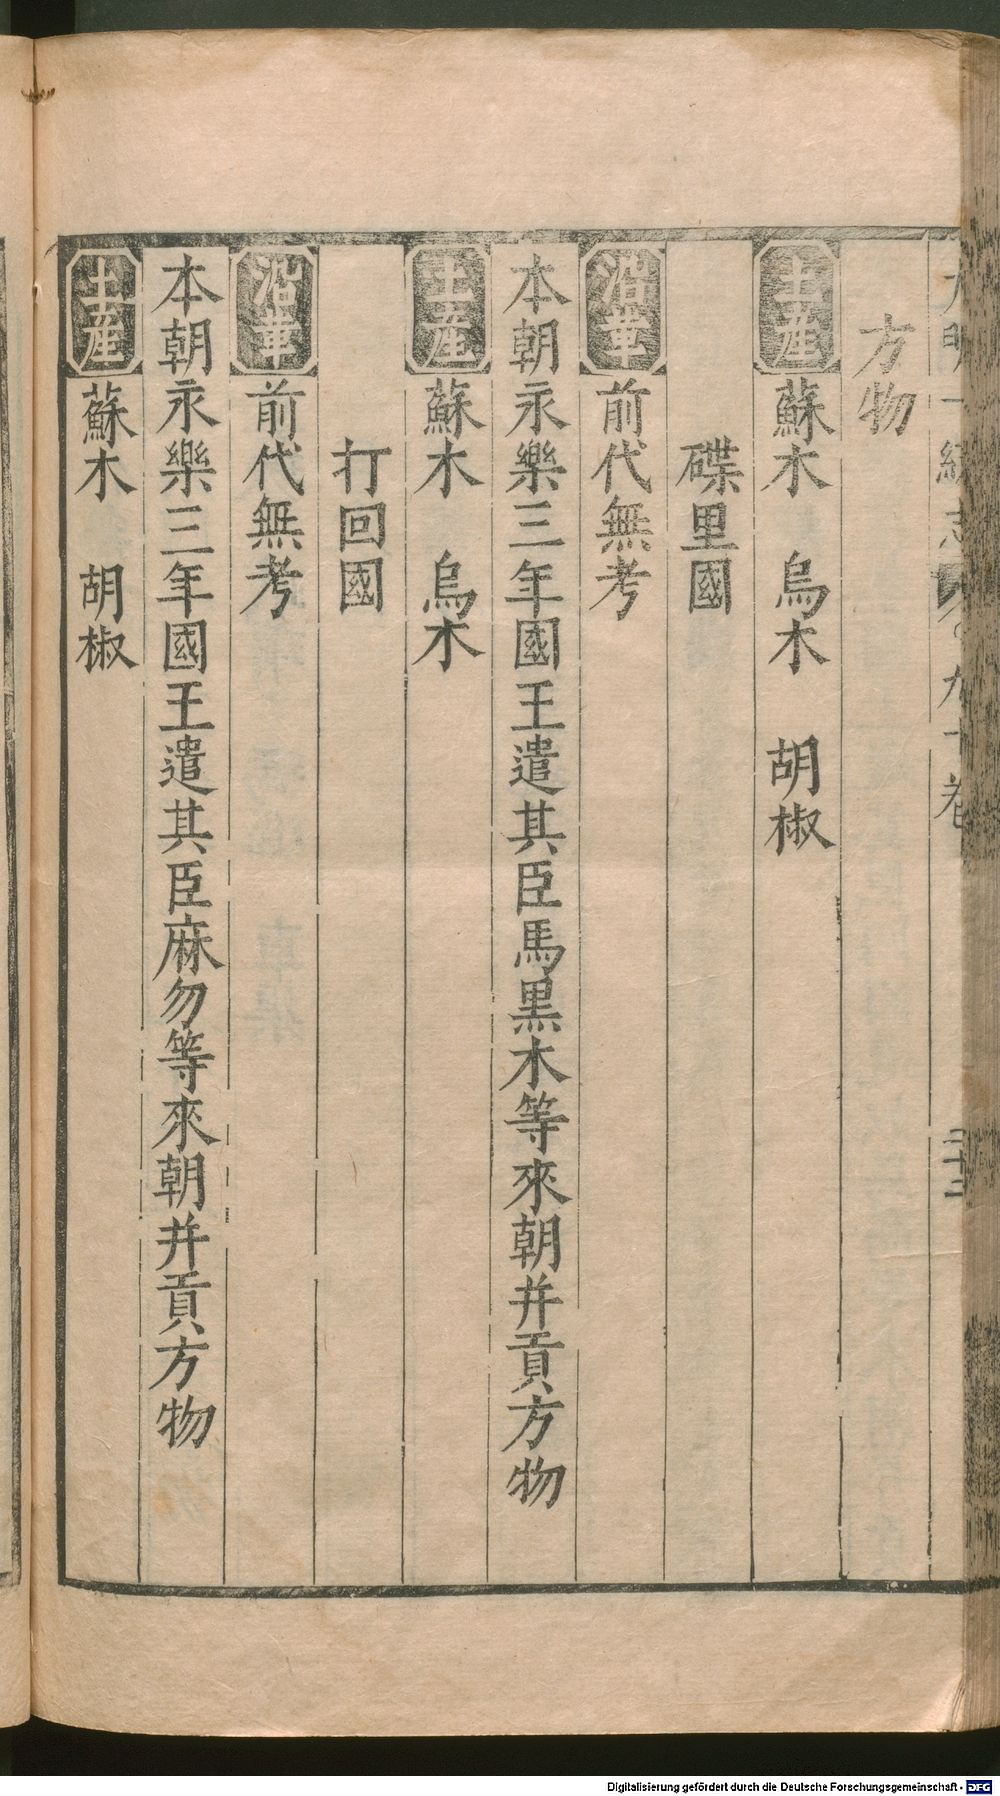 大明一統志 卷之九十卷 二十二
方物
土產 蘇木 烏木 胡椒
碟里國
沿革 前代無考
本朝永樂三年國王遣其臣馬黑木等來朝并貢方物
土產 蘇木 烏木
打回國
沿革 前代無考
本朝永樂三年國王遣其臣麻勿等來朝并貢方物
土產 蘇木 胡椒
Digitalisierung gefördert durch die Deutsche Forschungsgemeinschaft - DFG